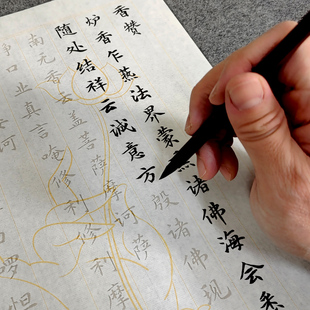 香赞
炉香乍爇法界蒙熏诸佛海会悉
随处结祥云诚意方殷诸佛现
南无香云盖菩萨摩诃萨
口业真言唵修利修利摩